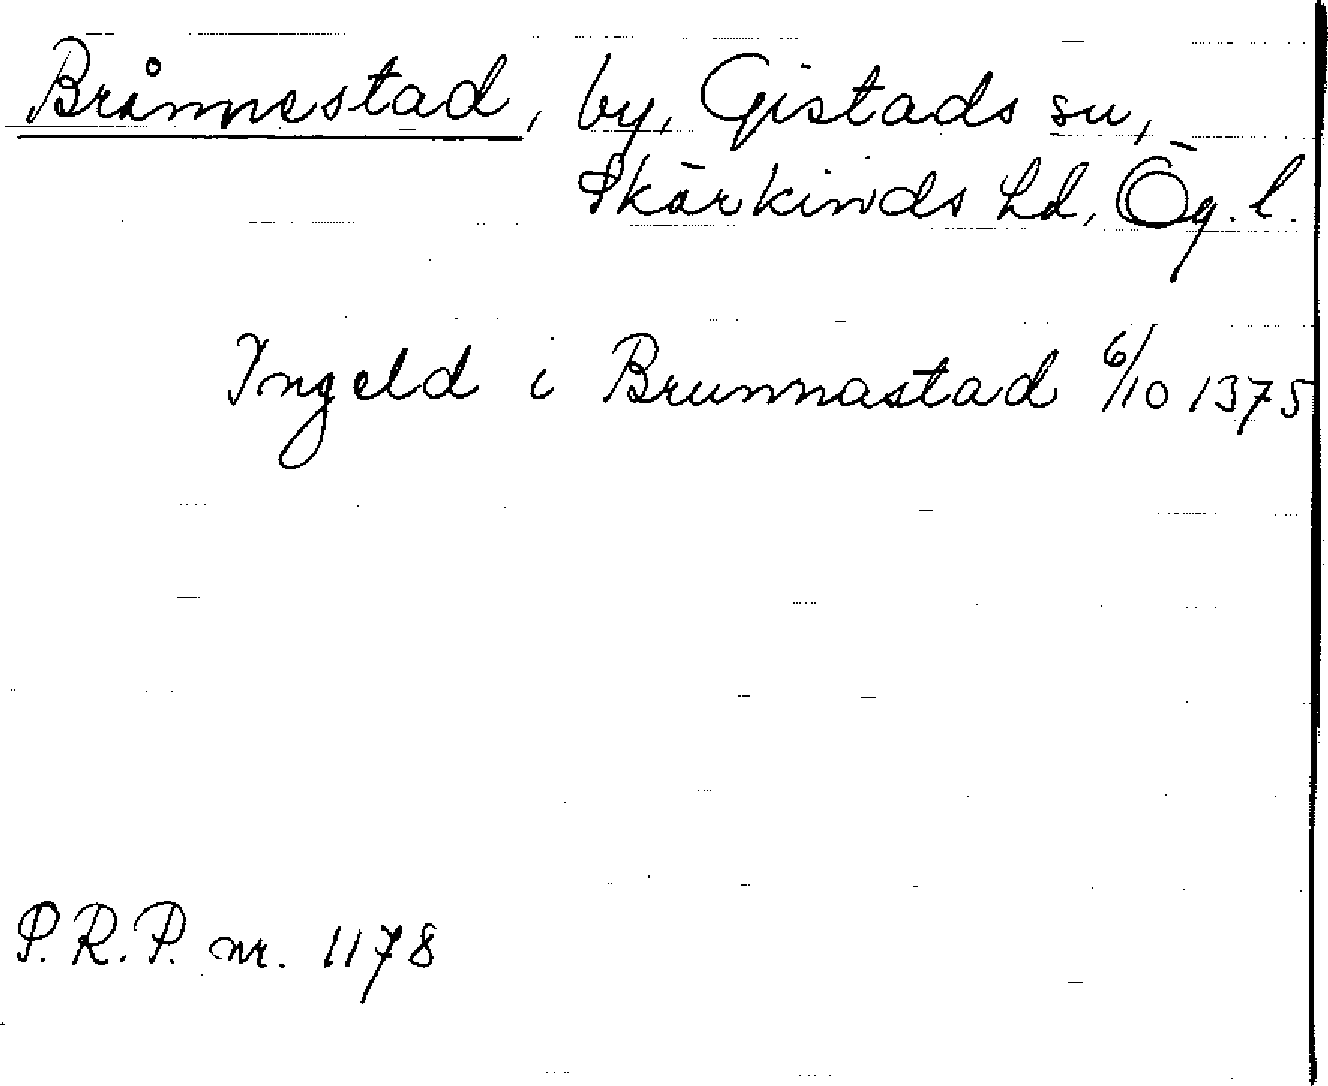 Brånnestad, by, Gistads sn,
Skärkinds hd, Ög. l.
Ingeld i Brunnastad 6/10 1375
P.R.P. nr. 1178